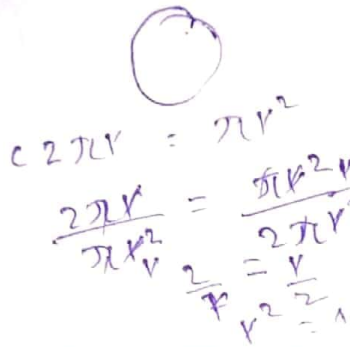 c 2πr = πr²
2πr / πr² = πr² / 2πr
2/r = r/2
r² =